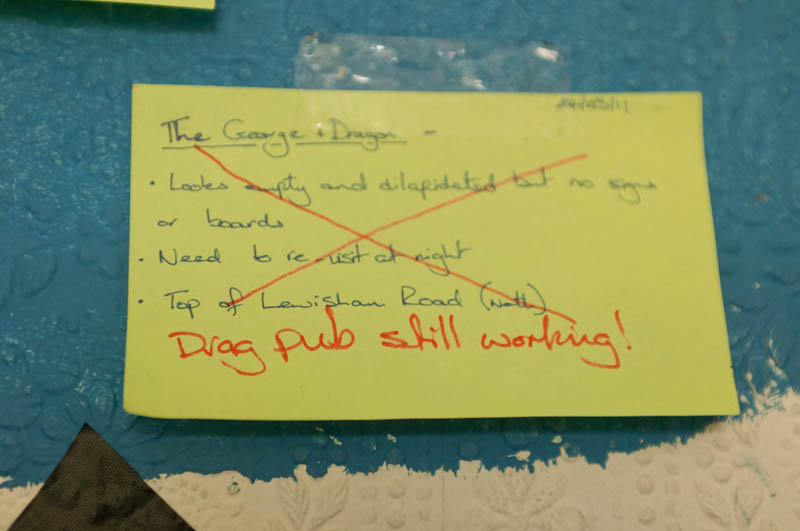 24/03/11
The George + Dragon -
• Looks empty and dilapidated but no signs
or boards
• Need to re-visit at night
• Top of Lewisham Road (North)
Drag pub still working!